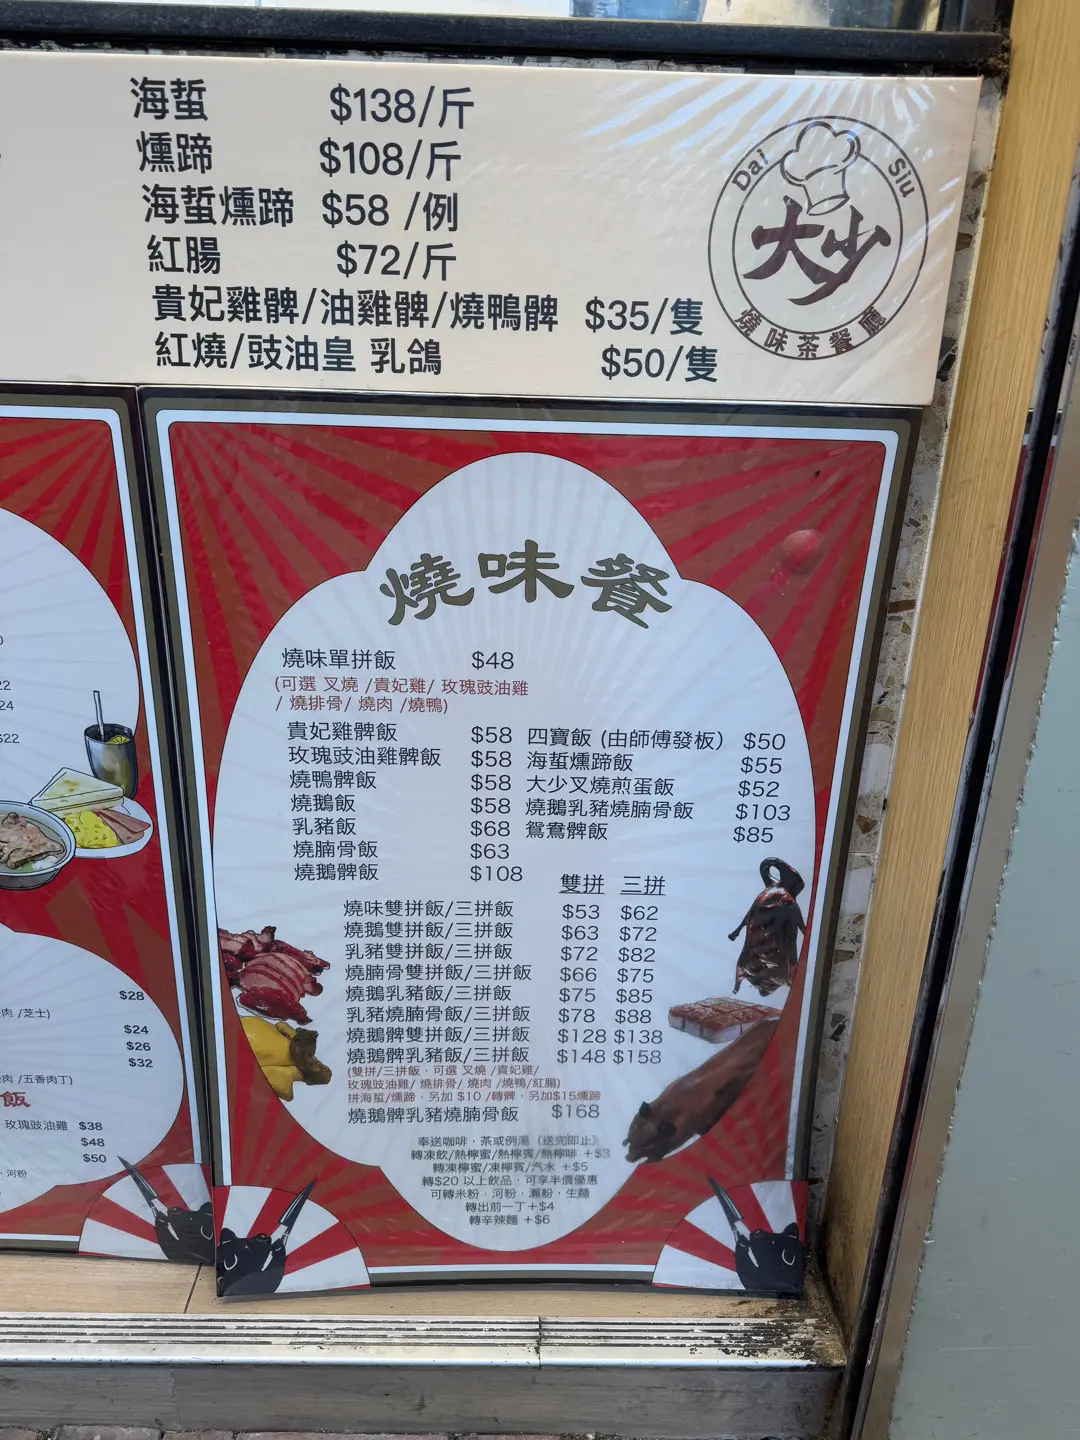 海蜇 $138/斤
燻蹄 $108/斤
海蜇燻蹄 $58 /例
紅腸 $72/斤
貴妃雞髀/油雞髀/燒鴨髀 $35/隻
紅燒/豉油皇 乳鴿 $50/隻
Dai Siu
大少
燒味茶餐廳
燒味餐
燒味單拼飯 $48
(可選 叉燒 /貴妃雞/ 玫瑰豉油雞
/ 燒排骨/ 燒肉 /燒鴨)
貴妃雞髀飯 $58
玫瑰豉油雞髀飯 $58
燒鴨髀飯 $58
燒鵝飯 $58
乳豬飯 $68
燒腩骨飯 $63
燒鵝髀飯 $108
四寶飯 (由師傅發板) $50
海蜇燻蹄飯 $55
大少叉燒煎蛋飯 $52
燒鵝乳豬燒腩骨飯 $103
鴛鴦髀飯 $85
雙拼 三拼
燒味雙拼飯/三拼飯 $53 $62
燒鵝雙拼飯/三拼飯 $63 $72
乳豬雙拼飯/三拼飯 $72 $82
燒腩骨雙拼飯/三拼飯 $66 $75
燒鵝乳豬飯/三拼飯 $75 $85
乳豬燒腩骨飯/三拼飯 $78 $88
燒鵝髀雙拼飯/三拼飯 $128 $138
燒鵝髀乳豬飯/三拼飯 $148 $158
(雙拼/三拼飯，可選 叉燒 /貴妃雞/
玫瑰豉油雞/ 燒排骨/ 燒肉 /燒鴨/紅腸)
拼海蜇/燻蹄，另加 $10 /轉髀，另加$15燻蹄
燒鵝髀乳豬燒腩骨飯 $168
奉送咖啡，茶或例湯（送完即止）
轉凍飲/熱檸蜜/熱檸賓/熱檸啡 +$3
轉凍檸蜜/凍檸賓/汽水 +$5
轉$20 以上飲品，可享半價優惠
可轉米粉，河粉，瀨粉，生麵
轉出前一丁+$4
轉辛辣麵 +$6
22
24
$22
$28
肉 /芝士)
$24
$26
$32
肉 /五香肉丁)
飯
玫瑰豉油雞 $38
$48
$50
河粉